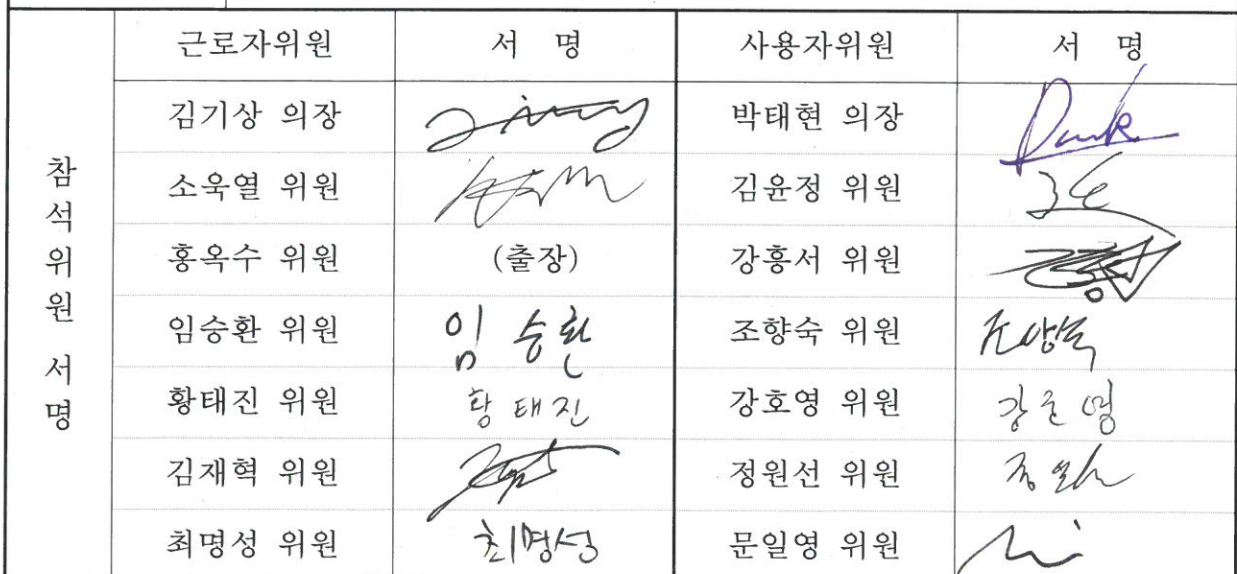 근로자위원 서 명 사용자위원 서 명
김기상 의장 박태현 의장 Park
소욱열 위원 김윤정 위원
홍옥수 위원 (출장) 강흥서 위원
임승환 위원 임승환 조향숙 위원 조향숙
황태진 위원 황태진 강호영 위원 강호영
김재혁 위원 정원선 위원
최명성 위원 최명성 문일영 위원
참석위원 서명